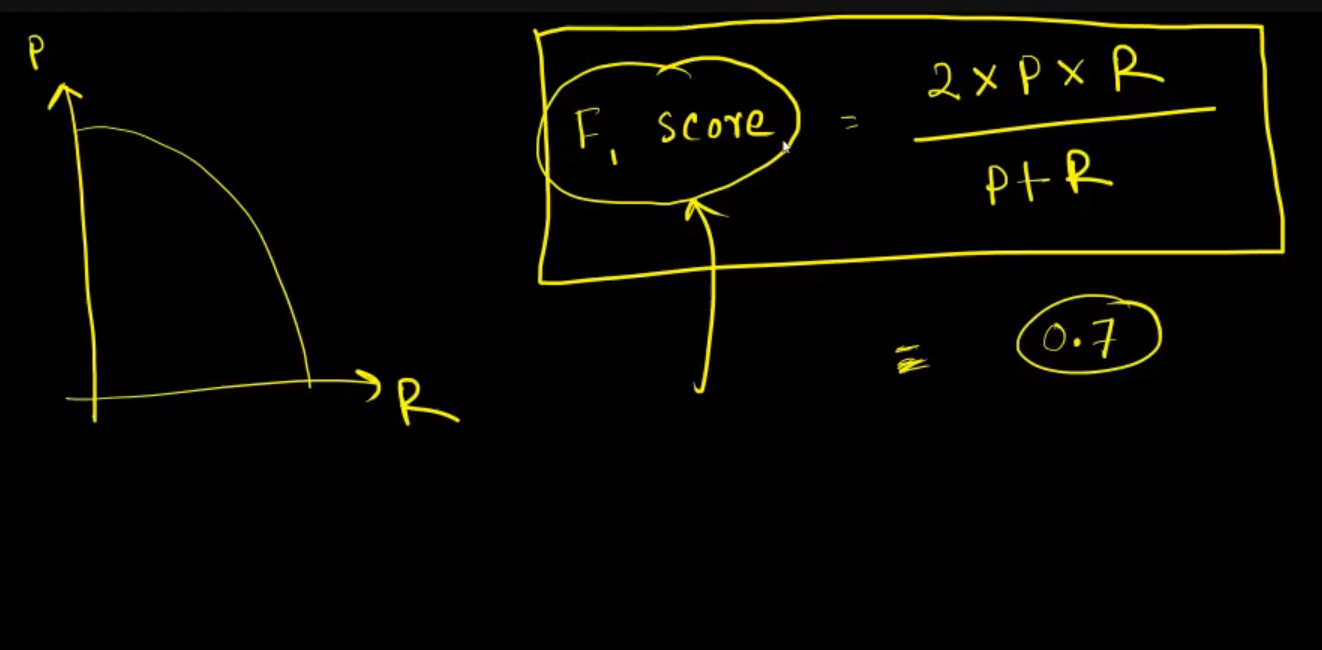 P
R
F1 score = 2 × P × R
P + R
= 0.7